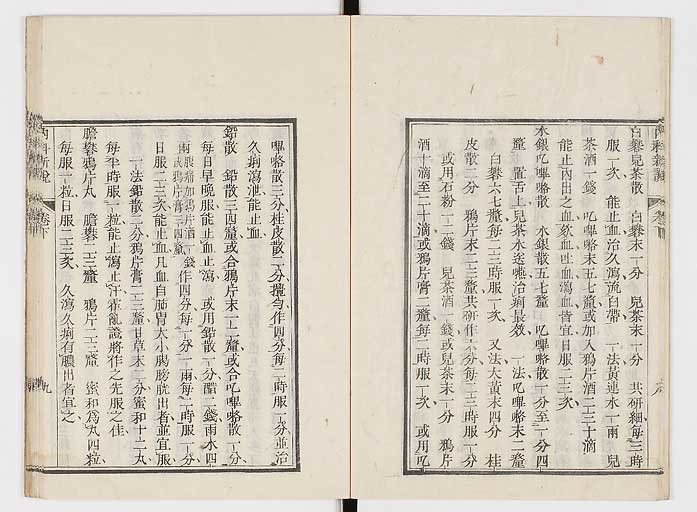 白礬兒茶散　白礬末一分　兒茶末一分　共研細每三時
服一次　能止血治久瀉流白帶　一法黃連水一兩　兒
茶酒一錢　吃嗶嗒末五七釐或加入鴉片酒二三十滴
能止內出之血欬血吐血瀉血皆宜日服二三次
水銀吃嗶嗒散　水銀散五七釐　吃嗶嗒散一分至一分四
釐　置舌上兒茶水送嚥治痢最效　一法吃嗶嗒末二釐
白礬六七釐每二三時服一次　又法大黃末四分　桂
皮散二分　鴉片末二三釐共研作六分每二三時服一分
或用石粉一二錢　兒茶酒一錢或兒茶末一分　鴉片
酒十滴至二十滴或鴉片膏二釐每二時服一次　或用吃
嗶嗒散三分桂皮散二分攪勻作四分每二時服一分並治
久痢瀉泄能止血
鉛散　鉛散三四釐或合鴉片末一二釐或合吃嗶嗒散一分
每日早晚服能止血止瀉　或用鉛散一分醋二錢雨水四
兩腹痛加鴉片酒一錢
或鴉片膏三四釐
作四分每一分一兩每二時服一分
日服二三次能止血凡血自肺胃大小腸膀胱出者並宜服
一法鉛散二分鴉片膏二三釐甘草末二分蜜和十二丸
每半時服一粒能止瀉止汗霍亂議將作之先服之佳
膽礬鴉片丸　膽礬二三釐　鴉片二三釐　蜜和為丸四粒
每服一粒日服二三次　久瀉久痢有膿出者宜之
內科新說
卷下
九